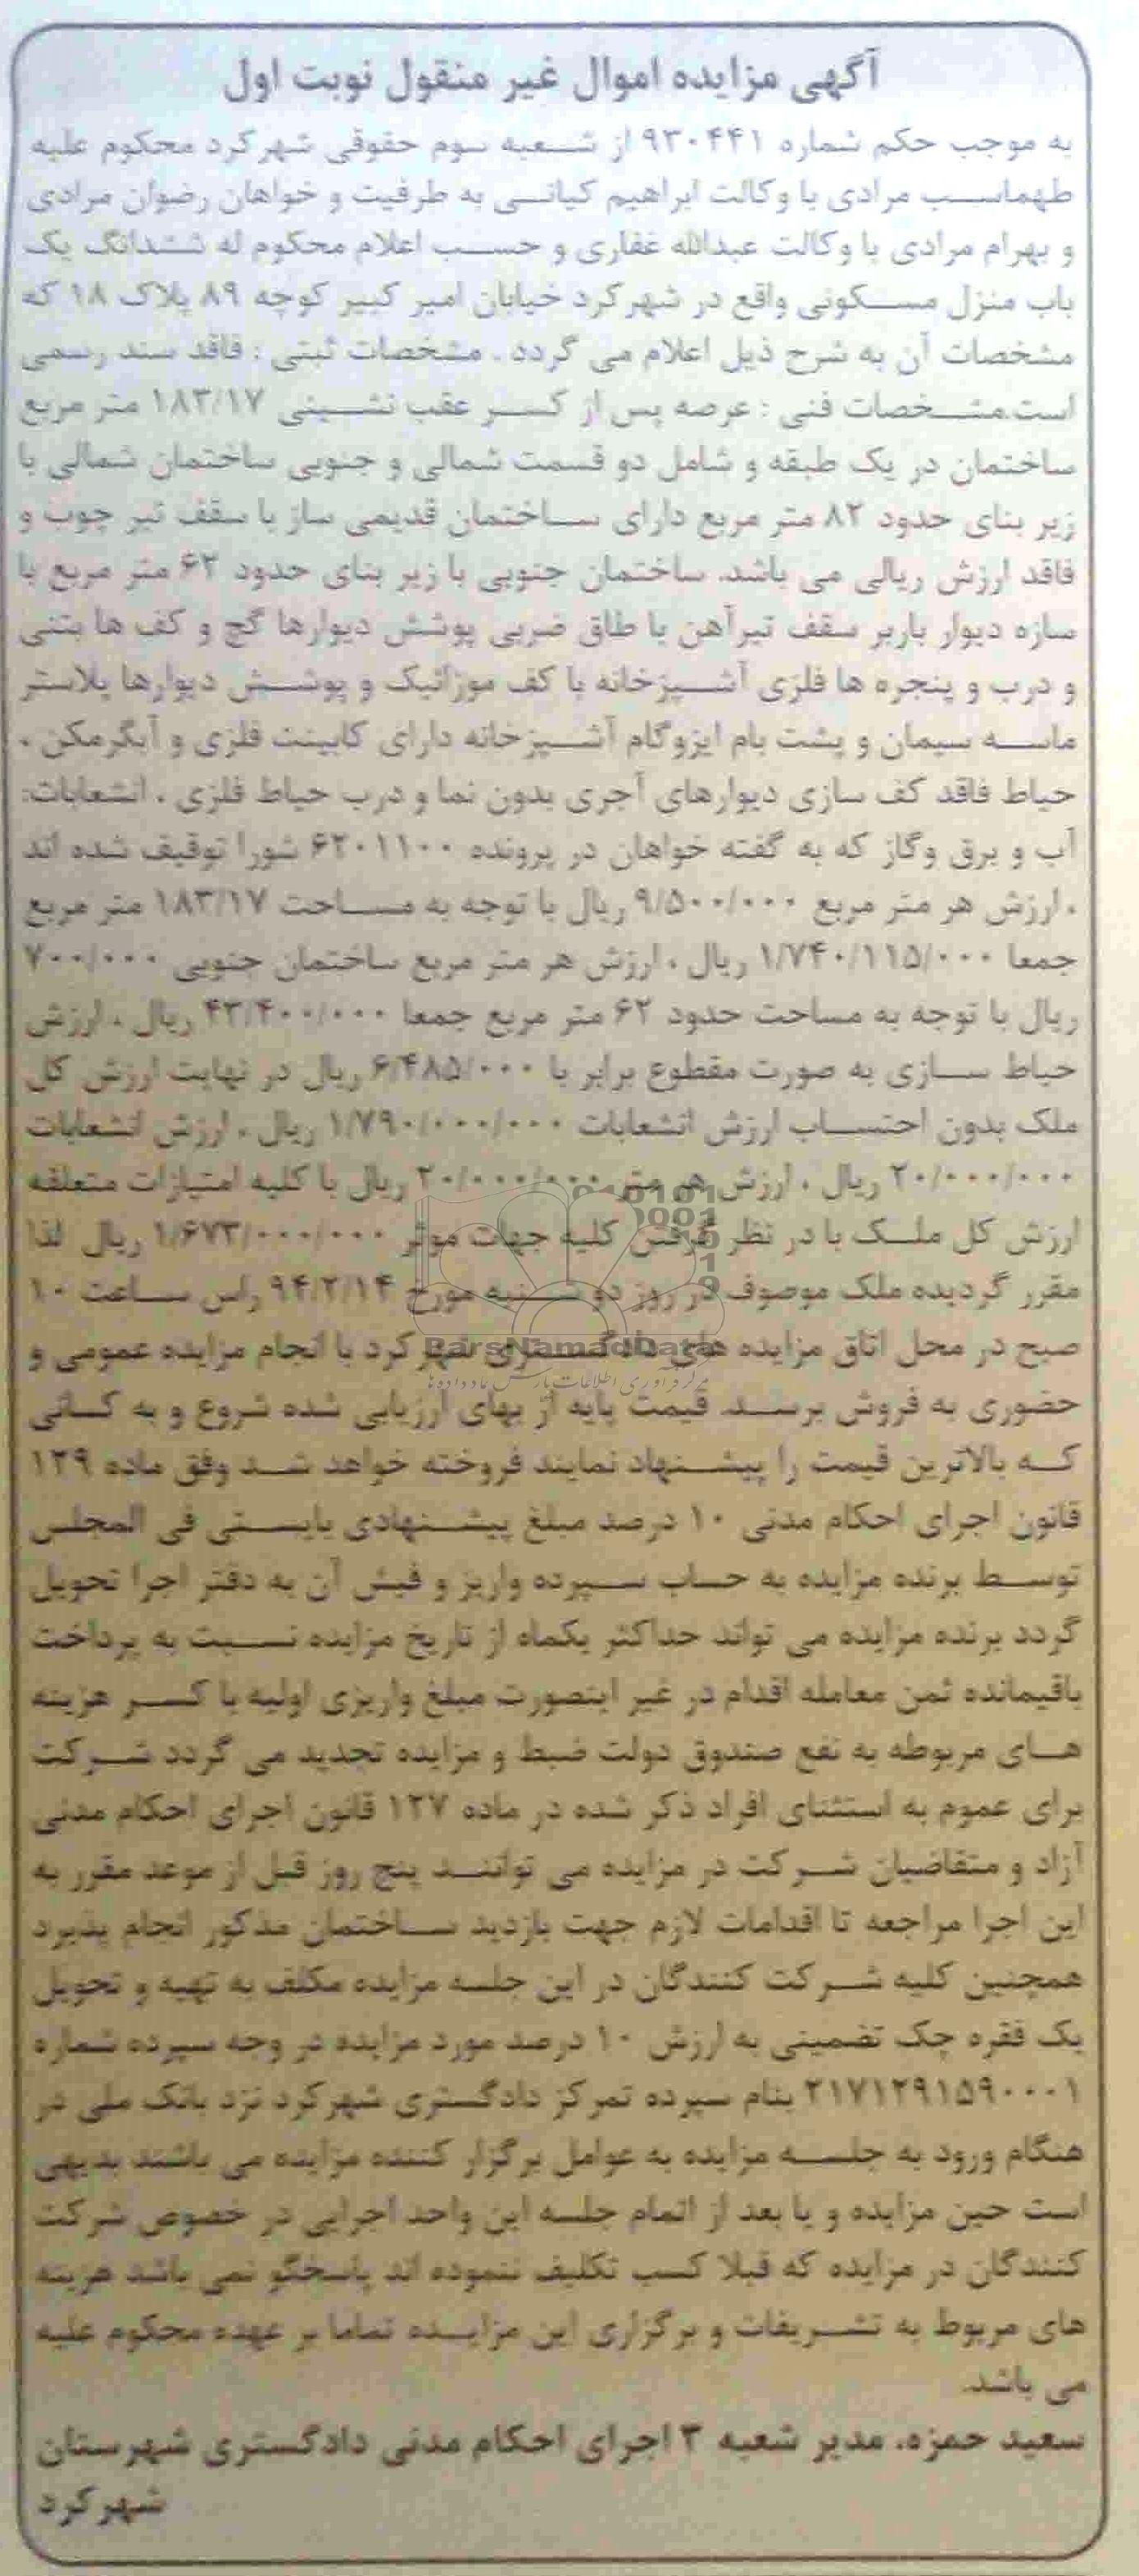 آگهی مزایده اموال غیر منقول نوبت اول
به موجب حکم شماره ۹۳۰۴۴۱ از شعبه سوم حقوقی شهرکرد محکوم علیه
طهماسب مرادی با وکالت ابراهیم کیانی به طرفیت و خواهان رضوان مرادی
و بهرام مرادی با وکالت عبدالله غفاری و حسب اعلام محکوم له ششدانگ یک
باب منزل مسکونی واقع در شهرکرد خیابان امیر کبیر کوچه ۸۹ پلاک ۱۸ که
مشخصات آن به شرح ذیل اعلام می گردد . مشخصات ثبتی : فاقد سند رسمی
است.مشخصات فنی : عرصه پس از کسر عقب نشینی ۱۸۳/۱۷ متر مربع
ساختمان در یک طبقه و شامل دو قسمت شمالی و جنوبی ساختمان شمالی با
زیر بنای حدود ۸۲ متر مربع دارای ساختمان قدیمی ساز با سقف تیر چوب و
فاقد ارزش ریالی می باشد. ساختمان جنوبی با زیر بنای حدود ۶۲ متر مربع با
سازه دیوار باربر سقف تیرآهن با طاق ضربی پوشش دیوارها گچ و کف ها بتنی
و درب و پنجره ها فلزی آشپزخانه با کف موزائیک و پوشش دیوارها پلاستر
ماسه سیمان و پشت بام ایزوگام آشپزخانه دارای کابینت فلزی و آبگرمکن .
حیاط فاقد کف سازی دیوارهای آجری بدون نما و درب حیاط فلزی . انشعابات:
آب و برق وگاز که به گفته خواهان در پرونده ۶۲۰۱۱۰۰ شورا توقیف شده اند
. ارزش هر متر مربع ۹/۵۰۰/۰۰۰ ریال با توجه به مساحت ۱۸۳/۱۷ متر مربع
جمعا ۱/۷۴۰/۱۱۵/۰۰۰ ریال . ارزش هر متر مربع ساختمان جنوبی ۷۰۰/۰۰۰
ریال با توجه به مساحت حدود ۶۲ متر مربع جمعا ۴۳/۴۰۰/۰۰۰ ریال . ارزش
حیاط سازی به صورت مقطوع برابر با ۶/۴۸۵/۰۰۰ ریال در نهایت ارزش کل
ملک بدون احتساب ارزش انشعابات ۱/۷۹۰/۰۰۰/۰۰۰ ریال . ارزش انشعابات
۲۰/۰۰۰/۰۰۰ ریال . ارزش هر متر ۲۰/۰۰۰/۰۰۰ ریال با کلیه امتیازات متعلقه
ارزش کل ملک با در نظر گرفتن کلیه جهات موثر ۱/۶۷۳/۰۰۰/۰۰۰ ریال لذا
مقرر گردیده ملک موصوف در روز دو شنبه مورخ ۹۴/۲/۱۴ راس ساعت ۱۰
صبح در محل اتاق مزایده های دادگستری شهرکرد با انجام مزایده عمومی و
حضوری به فروش برسد. قیمت پایه از بهای ارزیابی شده شروع و به کسانی
که بالاترین قیمت را پیشنهاد نمایند فروخته خواهد شد وفق ماده ۱۲۹
قانون اجرای احکام مدنی ۱۰ درصد مبلغ پیشنهادی بایستی فی المجلس
توسط برنده مزایده به حساب سپرده واریز و فیش آن به دفتر اجرا تحویل
گردد برنده مزایده می تواند حداکثر یکماه از تاریخ مزایده نسبت به پرداخت
باقیمانده ثمن معامله اقدام در غیر اینصورت مبلغ واریزی اولیه با کسر هزینه
های مربوطه به نفع صندوق دولت ضبط و مزایده تجدید می گردد شرکت
برای عموم به استثنای افراد ذکر شده در ماده ۱۲۷ قانون اجرای احکام مدنی
آزاد و متقاضیان شرکت در مزایده می توانند پنج روز قبل از موعد مقرر به
این اجرا مراجعه تا اقدامات لازم جهت بازدید ساختمان مذکور انجام پذیرد
همچنین کلیه شرکت کنندگان در این جلسه مزایده مکلف به تهیه و تحویل
یک فقره چک تضمینی به ارزش ۱۰ درصد مورد مزایده در وجه سپرده شماره
۲۱۷۱۲۹۱۵۹۰۰۰۱ بنام سپرده تمرکز دادگستری شهرکرد نزد بانک ملی در
هنگام ورود به جلسه مزایده به عوامل برگزار کننده مزاینه می باشند بدیهی
است حین مزایده و یا بعد از اتمام جلسه این واحد اجرایی در خصوص شرکت
کنندگان در مزایده که قبلا کسب تکلیف ننموده اند پاسخگو نمی باشد هزینه
های مربوط به تشریفات و برگزاری این مزایده تماما بر عهده محکوم علیه
می باشد.
سعید حمزه، مدیر شعبه ۳ اجرای احکام مدنی دادگستری شهرستان
شهرکرد
ParsNamadData
مرکز فرآوری اطلاعات پارس نماد داده ها